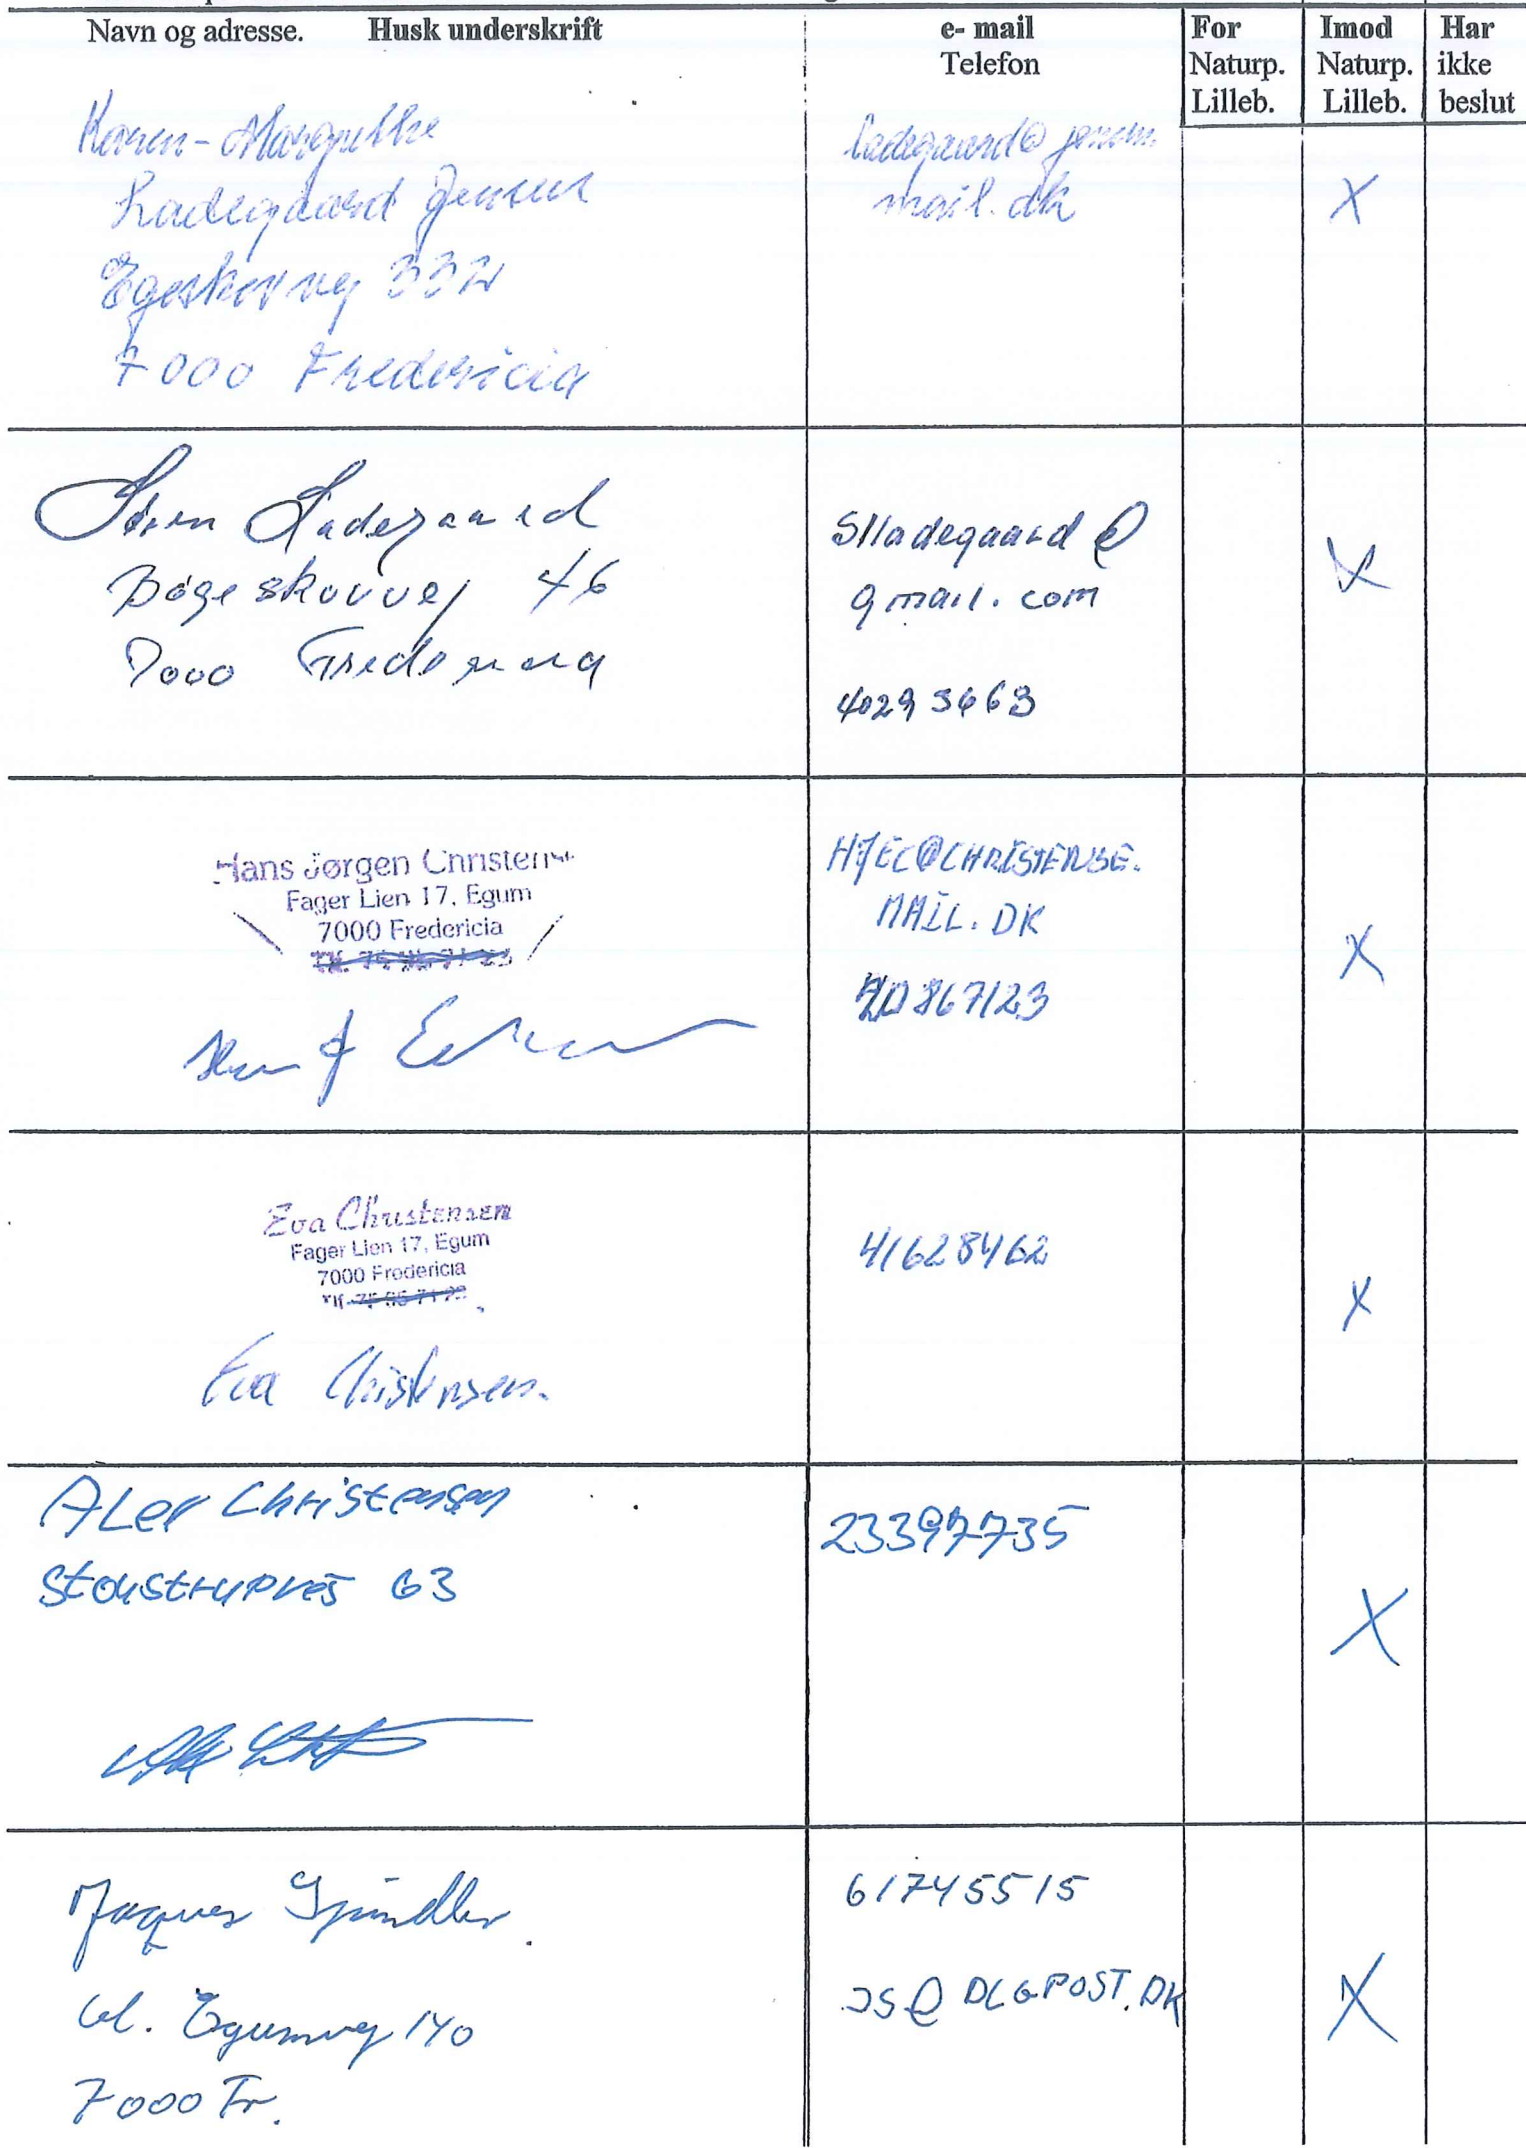 Navn og adresse. Husk underskrift
e- mail
Telefon
For
Naturp.
Lilleb.
Imod
Naturp.
Lilleb.
Har
ikke
beslut
Karen-Margrethe
Ladegaard Jensen
Egeskovvej
7000 Fredericia
ladegaard@jensen.
mail.dk
X
Søren Ladegaard
Bøgeskovvej 46
7000 Fredericia
Slladegaard@
gmail.com
X
Hans Jørgen
Fager Lien 17, Egum
7000 Fredericia
HJEC@CHRISTENSE.
MAIL.DK
X
Eva Christensen
Fager Lien 17, Egum
7000 Fredericia
Eva Christensen.
41628462
X
Christensen
63
23397735
X
Jaques Spindler.
Gl. Egumvej 140
7000 Fr.
61745515
JS@DLGPOST.DK
X